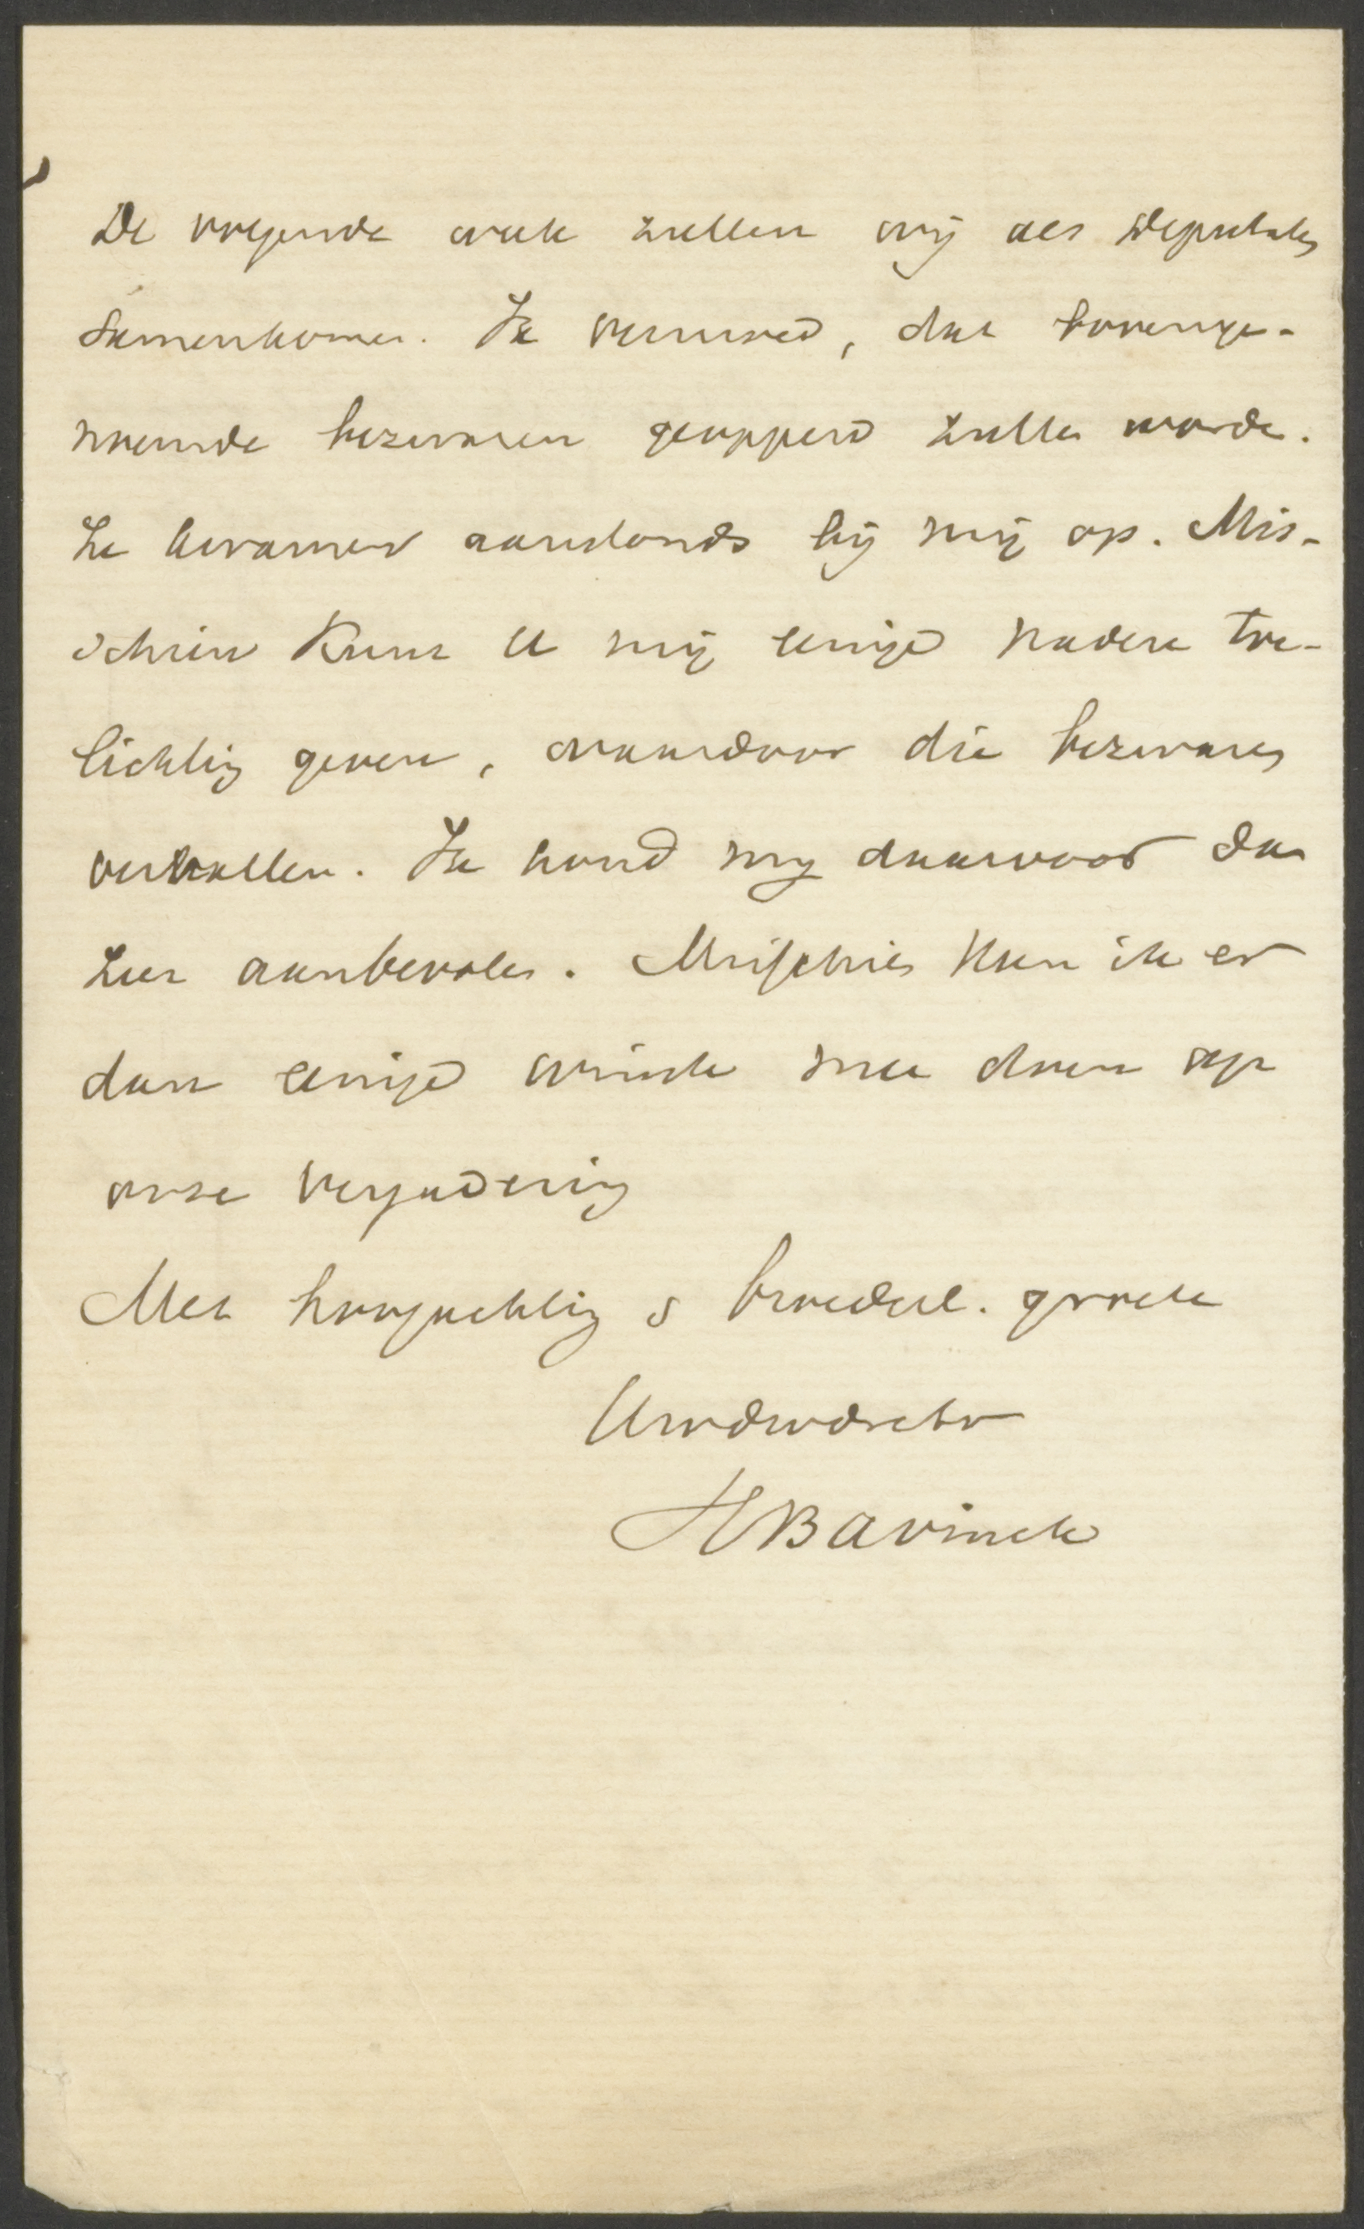 De volgende week zullen wij als Deputaten
samenkomen. Ik vermoed, dat bovenge-
noemde bezwaren geopperd zullen worden.
Ze kwamen aanstonds bij mij op. Mis-
schien kunt U mij eenige nadere toe-
lichting geven, waardoor die bezwaren
vervallen. Ik houd mij daarvoor dan
zeer aanbevolen. Misschien kan ik er
dan eenige winst mee doen op
onze vergadering
Met hoogachting & broederl. groete
Uwdwdnstbr
HBavinck